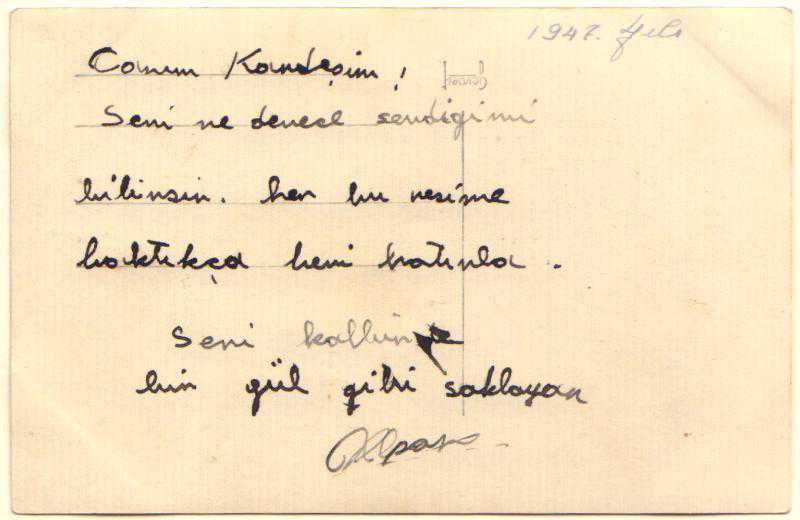 1947.
Canım Kardeşim!
Seni ne derece sevdiğimi
bilirsin. her bu resime
baktıkça beni hatırla.
Seni kalbinde
bir gül gibi saklayan